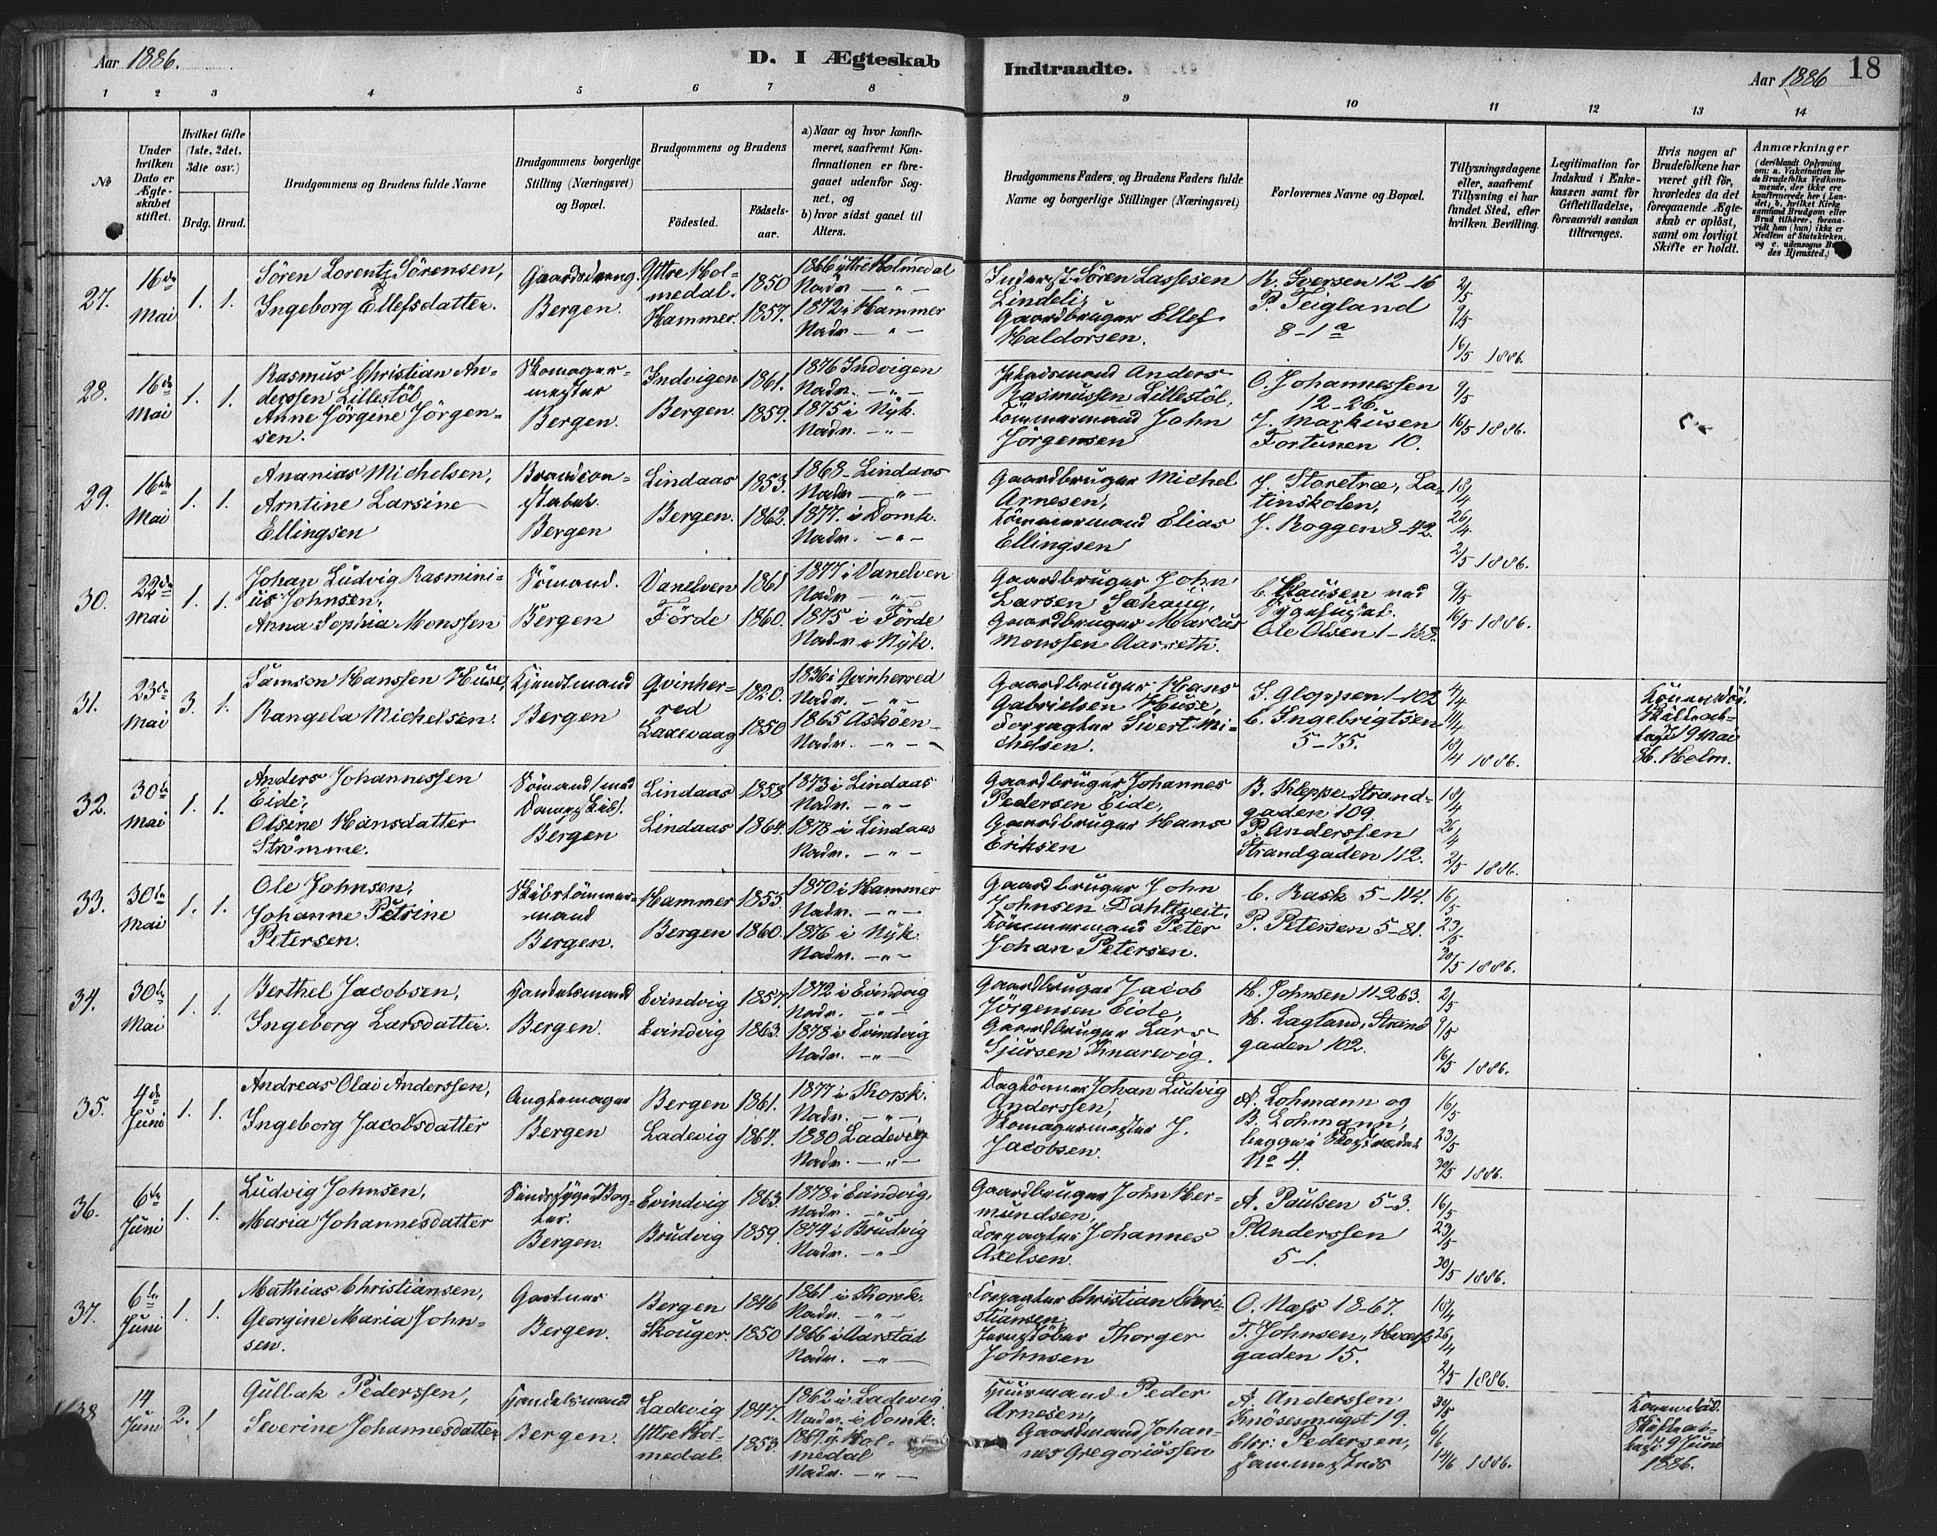 Aar 1886.
D. I Ægteskab
Indtraadte.
Aar 1886
18
1 2 3 4 5 6 7 8 9 10 11 12 13 14
No
Under hvilken Dato er Ægteskabet stiftet.
Hvilket Gifte (1ste, 2det, 3die osv.)
Brdg. Brud.
Brudgommens og Brudens fulde Navne
Brudgommens borgerlige Stilling (Næringsvei) og Bopæl.
Brudgommens og Brudens
Fødested.
Fødselsaar.
a) Naar og hvor konfirmeret, saafremt Konfirmationen er foregaaet udenfor Sognet, og
b) hvor sidst gaaet til Alters.
Brudgommens Faders og Brudens Faders fulde Navne og borgerlige Stillinger (Næringsvei)
Forlovernes Navne og Bopæl.
Tillysningsdagene eller, saafremt Tillysning ei har fundet Sted, efter hvilken Bevilling.
Legitimation for Indskud i Enkekassen samt for Giftetilladelse, forsaavidt saadan tiltrænges.
Hvis nogen af Brudefolkene har været gift før, hvorledes da det foregaaende Ægteskab er opløst, samt om lovligt Skifte er holdt.
Anmærkninger
27. 16de Mai 1. 1.
Sören Lorentz Sörensen,
Ingeborg Ellefsdatter.
Gaardsdreng.
Bergen.
Yttre Holmedal. 1850
Hammer. 1857.
1866 i Yttre Holmedal
Nadv. — „ —
1872 i Hammer
Nadv. — „ —
Sören Lassesen
Lindeli,
Gaardbruger Ellef
Haldorsen.
R. Iversen 12-16
P. Teigland
8-1a
2/5
9/5
16/5 1886.
28. 16de Mai 1. 1.
Rasmus Christian Anderssen Lillestöl
Anne Jörgine Jörgensen.
Skomagermester
Bergen.
Indvigen 1861.
Bergen. 1859.
1876 Indvigen
Nadv. — „ —
1875 i Nyk.
Nadv. — „ —
Pladsmand Anders
Rasmussen Lillestöl,
Tömmermand John
Jörgensen
O. Johannessen
12-26.
J. Markusen
Fortunen 10.
9/5
16/5 1886.
29. 16de Mai 1. 1.
Ananias Michelsen,
Arntine Larsine
Ellingsen
Brandconstabel
Bergen
Lindaas 1853.
Bergen. 1862.
1868 Lindaas
Nadv. — „ —
1877. i Domk.
Nadv. — „ —
Gaardbruger Michel
Arnesen,
Tömmermand Elias
Ellingsen
J. Storetræ, Latinskolen,
J. Roggen 8-42.
18/4
26/4
2/5 1886.
30. 22de Mai 1. 1.
Johan Ludvig Rasminius Johnsen,
Anna Sophia Monssen
Sömand.
Bergen
Vanelven 1861
Förde 1860.
1877 i Vanelven
Nadv. — „ —
1875 i Förde
Nadv. i Nyk.
Gaardbruger John
Larsen Sahaug,
Gaardbruger Marcus
Monssen Aarseth.
C. Clausen ved
Sygehuset.
Ole Olsen 1-
9/5
16/5 1886.
31. 23de Mai 3. 1.
Samson Hanssen Huse,
Rangela Michelsen.
Bergen
Qvinherred 1820.
Laxevaag 1850
1836 i Qvinherred
Nadv. — „ —
1865 Asköen
Nadv. — „ —
Gaardbruger Hans
Gabrielsen Huse,
Forpagter Sivert Michelsen.
J. Gloppen 1-102
C. Ingebrigtsen
5-75.
4/4
11/4
18/4 1886.
Konen död.
Skifteattest 19 Mai
H. Holm.
32. 30te Mai 1. 1.
Anders Johannessen
Eide,
Olsine Hansdatter
Strömme.
Sömand
Bergen
Lindaas 1858
Lindaas 1864.
1873 i Lindaas
Nadv. — „ —
1878 i Lindaas
Nadv. — „ —
Gaardbruger Johannes
Pedersen Eide,
Gaardbruger Hans
Eriksen
B. Kleppe Strandgaden 109.
P. Anderssen
Strandgaden 112.
18/4
26/4
2/5 1886.
33. 30te Mai 1. 1.
Ole Johnsen,
Johanne Petrine
Petersen.
Skibstömmermand
Bergen.
Hammer 1855.
Bergen 1860.
1870 i Hammer
Nadv. — „ —
1876 i Nyk.
Nadv. — „ —
Gaardbruger John
Johnsen Dahltveit.
Tömmermand Peter
Johan Petersen.
C. Rask 5-
P. Petersen 5-81.
16/5
23/5
30/5 1886.
34. 30te Mai 1. 1.
Berthel Jacobsen,
Ingeborg Larsdatter.
Handelsmand
Bergen.
Evindvig 1857.
Evindvig 1863.
1872 i Evindvig
Nadv. — „ —
1878 i Evindvig
Nadv. — „ —
Gaardbruger Jacob
Jörgensen Eide,
Gaardbruger Lars
Sjursen Knarevig.
H. Johnsen 11-263.
H. Lagland, Strandgaden 102.
2/5
9/5
16/5 1886.
35. 4de Juni 1. 1.
Andreas Olai Anderssen,
Ingeborg Jacobsdatter
Bergen
Bergen 1861.
Ladevig 1864.
1877 i Korsk.
Nadv. — „ —
1880 Ladevig
Nadv. — „ —
Daglönner Johan Ludvig
Anderssen,
Skomagermester J.
Jacobsen.
A. Lohmann og
B. Lohmann,
begge i
No 4.
16/5
23/5
30/5 1886.
36. 6te Juni 1. 1.
Ludvig Johnsen,
Maria Johannesdatter
Bergen.
Evindvig 1863.
Brudvig 1859.
1878 i Evindvig.
Nadv. — „ —
1874 i Brudvig
Nadv. — „ —
Gaardbruger John Hermundsen,
Forpagter Johannes
Axelsen.
A. Paulsen 5-3.
P. Anderssen
5-1.
16/5
23/5
30/5 1886.
37. 6te Juni 1. 1.
Mathias Christiansen,
Georgine Maria Johnsen.
Gartner
Bergen.
Bergen 1846
Skouger. 1850
1861 i Korsk.
Nadv. — „ —
1866 i Aarstad
Nadv. — „ —
Forpagter Christian Christiansen,
Jernstöber Thorger
Johnsen
O. Næss 18-67.
T. Johnsen,
gaden 15.
18/4
26/4
2/5 1886.
38 14 Juni 2. 1
Gullak Pederssen,
Severine Johannesdatter
Handelsmand
Bergen.
Ladevig 1847.
Yttre Holmedal. 1853.
1862 i Ladevig.
Nadv. i Domk.
1869 i Holmedal
Nadv. — „ —
Huusmand Peder
Arnesen,
Gaardmand Johannes Gregoriussen
A. Anderssen
Knösesmuget 19.
Chr: Pedersen,
sammesteds
30/5
6/6
14/6 1886.
Konen död.
Skifteattest. 9 Juni
1886.